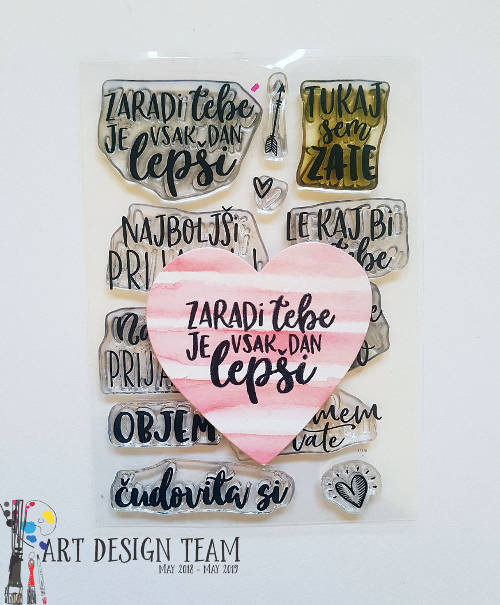 ZARADi tebe
JE VSAK DAN
lepši
TUKAJ
sem
ZATE
NAJBOLJŠi
LE KAJ Bi
tebe
ZARADi tebe
JE VSAK DAN
lepši
OBJEM
čudovita si
ART DESIGN TEAM
MAY 2018 - MAY 2019